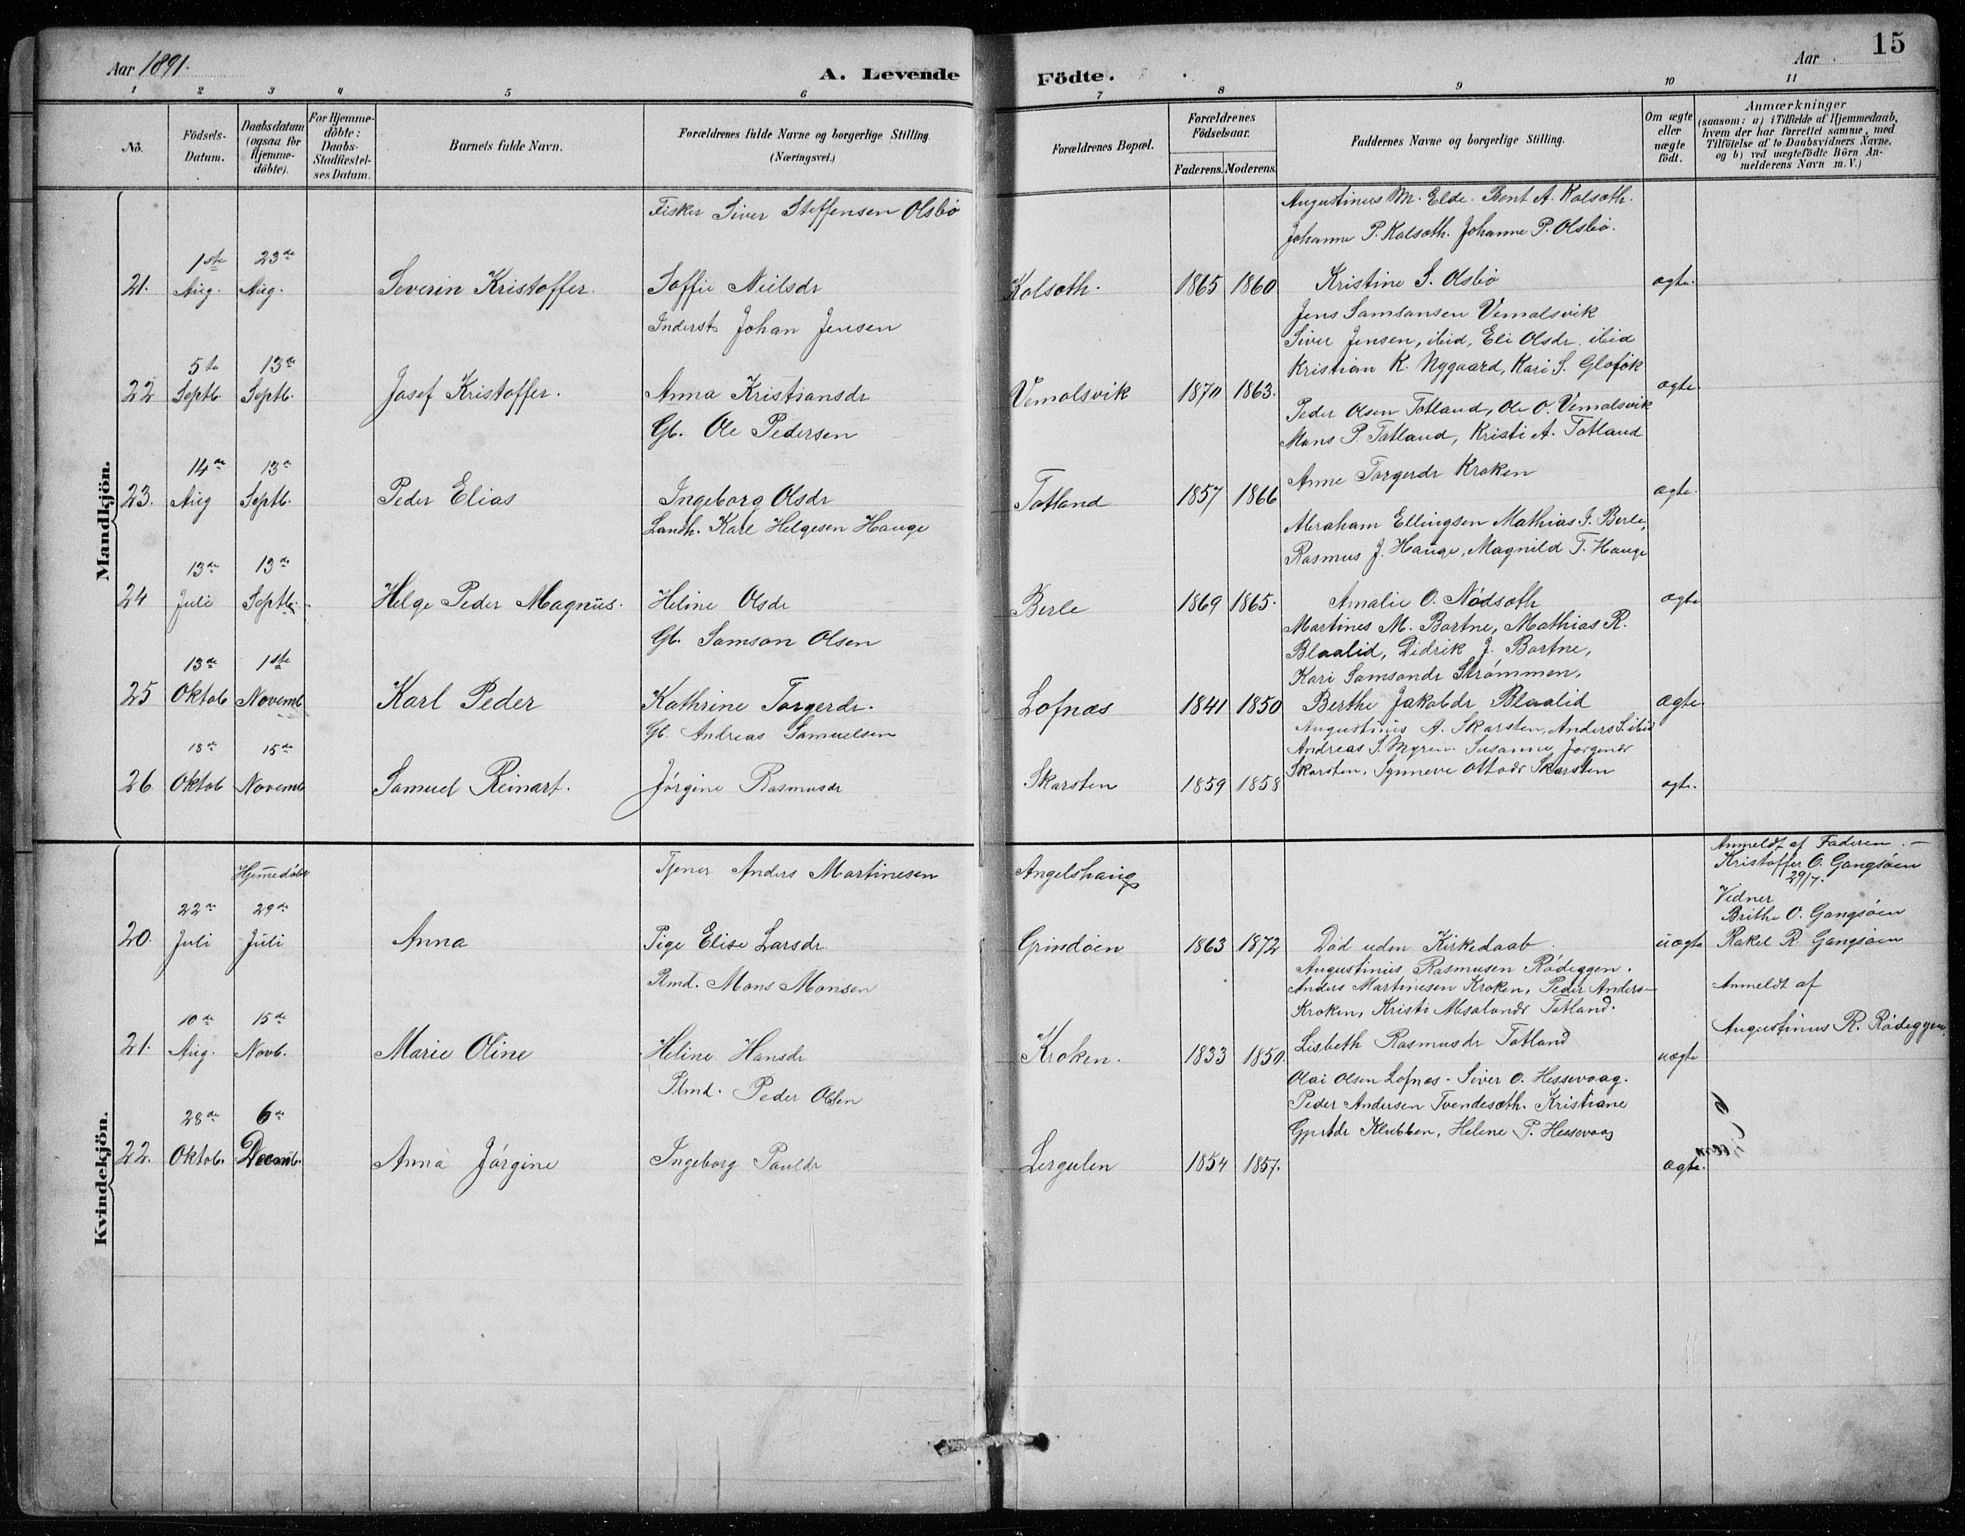 Aar 1891.
A. Levende
Födte.
Aar
15
1
2
3
4
5
6
7
8
9
10
11
No.
Födsels-
Datum.
Daabsdatum
(ogsaa for
Hjemme-
döbte).
For Hjemme-
döbte:
Daabs-
Stadfæstel-
ses Datum.
Barnets fulde Navn.
Forældrenes fulde Navne og borgerlige Stilling.
(Næringsvei.)
Forældrenes Bopæl.
Forældrenes
Födselsaar.
Faderens.
Moderens.
Faddernes Navne og borgerlige Stilling.
Om ægte
eller
uægte
födt.
Anmærkninger
(saasom: a) i Tilfælde af Hjemmedaab,
hvem der har forrettet samme, med
Tilföielse af to Daabsvidners Navne,
og b) ved uægtefödte Börn An-
melderens Navn m. V.)
Mandkjön.
Fisker Siver Steffensen Olsbö
Augustinus M. Elde. Bent A. Kolsæth.
Johanne P. Kolsæth. Johanne P. Olsbö.
1ste 23de
21. Aug. Aug. Severin Kristoffer. Soffie Nielsdr Kolsæth. 1865 1860 Kristine S. Olsbö ægte.
Inderst Johan Jensen
Jens Samsonsen Vemølsvik
Siver Jensen, ibid, Eli Olsdr. ibid
5te 13de
Kristian K. Nygaard, Kari S.
22 Septb. Septb. Josef Kristoffer. Anna Kristiansdr Vemølsvik 1870 1863. ægte
Gb. Ole Pedersen
Peder Olsen Totland, Ole O. Vemølsvik
Mons P. Totland, Kristi A. Totland
14de 13de
23. Aug Septb. Peder Elias Ingeborg Olsdr Totland 1857 1866 Anne Torgerdr Kroken ægte.
Landh. Karl Helgesen Hauge
Abraham Ellingsen Mathias J. Berle,
Rasmus J. Hauge, Magnild T. Hauge
13de 13de
24 Juli Septb. Helge Peder Magnus. Heline Olsdr Berle 1869 1865. Amalie O. Nödsæth ægte
Gb. Samson Olsen
Martines M. Bortne, Mathias R.
Blaalid, Didrik J. Bortne,
Kari Samsondr Strømmen,
13de 1ste
25 Oktob Novemb Karl Peder Kathrine Torgerdr. Lofnæs 1841 1850 Berthe Jakobdr Blaalid ægte.
Gb. Andreas Samuelsen
Augustinus A. Skorsten, Anders S. ibid
Andreas S. Myren. Susanne Jörgendr
18de 15de
Skorsten. Synneve Ottodr Skorsten
26 Oktob Novemb Samuel Reinart. Jörgine Rasmusdr Skorsten 1859 1858 ægte.
Kvindekjön.
Hjemmedöbt
Tjener Anders Martinesen
Angelshaug
Anmeldt af Faderen.
Kristoffer O. Gangsöen
29/7.
Vidner
Brithe O. Gangsöen
22de 29de
20. Juli Juli Anna Pige Elise Larsdr. Grindöen 1863 1872 Död uden Kirkedaab. uægte Rakel R. Gangsöen
Rmd. Mons Monsen
Augustinus Rasmusen Rödeggen.
Anders Martinesen Kroken, Peder Anders-
Kroken, Kristi Absalondr Totland.
Anmeldt af
Augustinus R. Rödeggen.
10de 15de
21. Aug. Novb. Marie Oline Heline Hansdr Kroken. 1833 1850. Lisbeth Rasmusdr Totland uægte
Plmd. Peder Olsen
Olai Olsen Lofnæs. Siver O. Hessevaag.
Peder Andersen Tvendesæth. Kristiane
Klubben, Helene P. Hessevaag
28de 6de
22. Oktob. Decemb. Anna Jörgine Ingeborg Pauldr Lergulen 1854 1857. ægte.